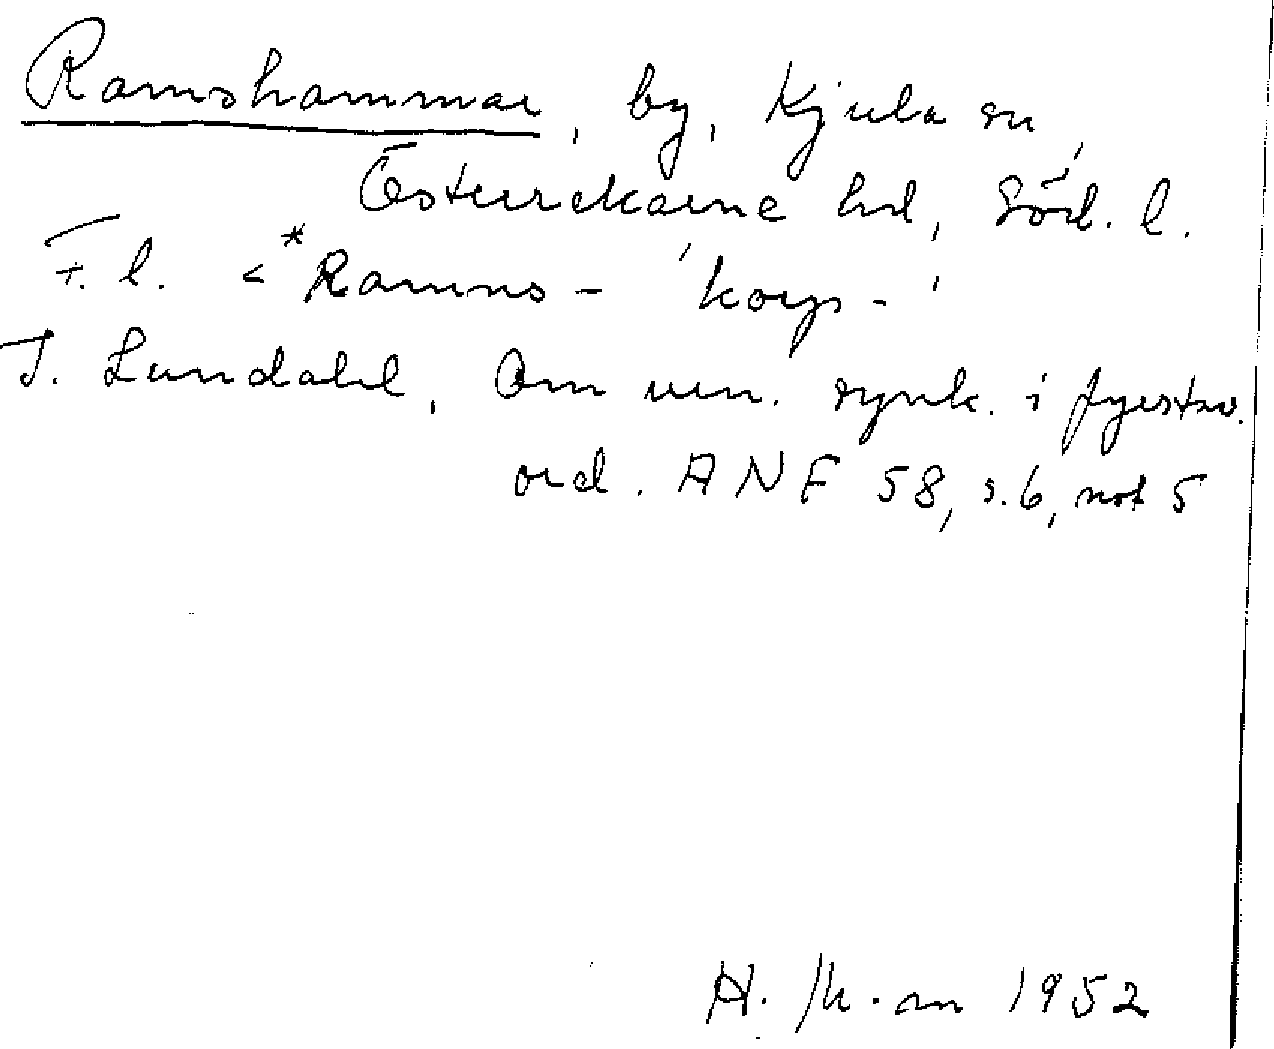 Ramshammar, by, Kjula sn,
Österrekarne hd, Södl. l.
F. l. < *Ramns- 'korp-'
I. Lundahl, Om vkn. synk. i fyrstav.
ord. ANF 58, s. 6, not 5
H. 1952